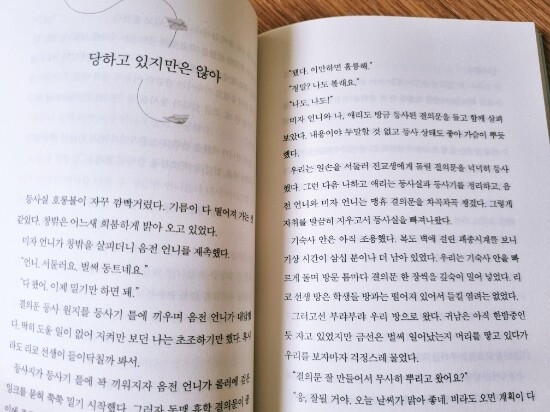 당하고 있지만은 않아
등사실 호롱불이 자꾸 깜빡거렸다. 기름이 다 떨어져 가는 것
같았다. 창밖은 어느새 희붐하게 밝아 오고 있었다.
미자 언니가 창밖을 살피더니 음전 언니를 재촉했다.
"언니, 서둘러요. 벌써 동트네요."
"다 됐어. 이제 밀기만 하면 돼."
결의문 등사 원지를 등사기 틀에 끼우며 음전 언니가 대답했
다. 딱히 도울 일이 없어 지켜만 보던 나는 초조하기만 했다. 혹시
라도 리코 선생이 들이닥칠까 봐서.
등사지가 등사기 틀에 꼭 끼워지자 음전 언니가 롤러에 검은
잉크를 묻혀 쭉쭉 밀기 시작했다. 그러자 동맹 휴학 결의문이
"됐다. 이만하면 훌륭해."
"정말? 나도 볼래요."
"나도, 나도!"
미자 언니와 나, 애리도 방금 등사된 결의문을 들고 함께 살펴
보았다. 내용이야 두말할 것 없고 등사 상태도 좋아 가슴이 뿌듯
했다.
우리는 일손을 서둘러 전교생에게 돌릴 결의문을 넉넉히 등사
했다. 그런 다음 나하고 애리는 등사실과 등사기를 정리하고, 음
전 언니와 미자 언니는 맹휴 결의문을 차곡차곡 챙겼다. 그렇게
자취를 말끔히 지우고서 등사실을 빠져나왔다.
기숙사 안은 아직 조용했다. 복도 벽에 걸린 괘종시계를 보니
기상 시간이 삼십 분이나 더 남아 있었다. 우리는 기숙사 안을 빠
르게 돌며 방문 틈마다 결의문 한 장씩을 깊숙이 밀어 넣었다. 리
코 선생 방은 학생들 방과는 떨어져 있어서 들킬 염려는 없었다.
그러고선 부랴부랴 우리 방으로 왔다. 귀남은 아직 한밤중인
듯 자고 있었지만 금선은 벌써 일어났는지 머리를 땋고 있다가
우리를 보자마자 걱정스레 물었다.
"결의문 잘 만들어서 무사히 뿌리고 왔어요?"
"응, 잘될 거야. 오늘 날씨가 맑아 좋네. 비라도 오면 계획이 다